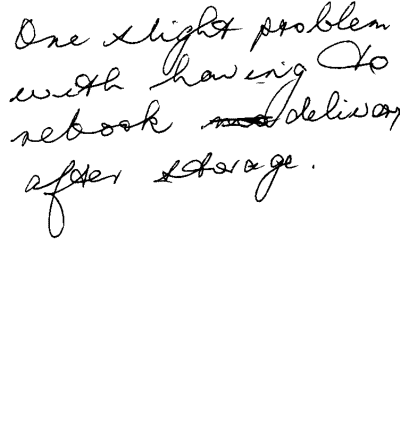 One slight problem
with having to
rebook delivery
after storage.